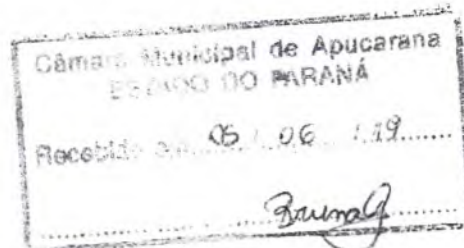 Câmara Municipal de Apucarana
ESTADO DO PARANÁ
Recebido em 05 / 06 / 19
Bruna